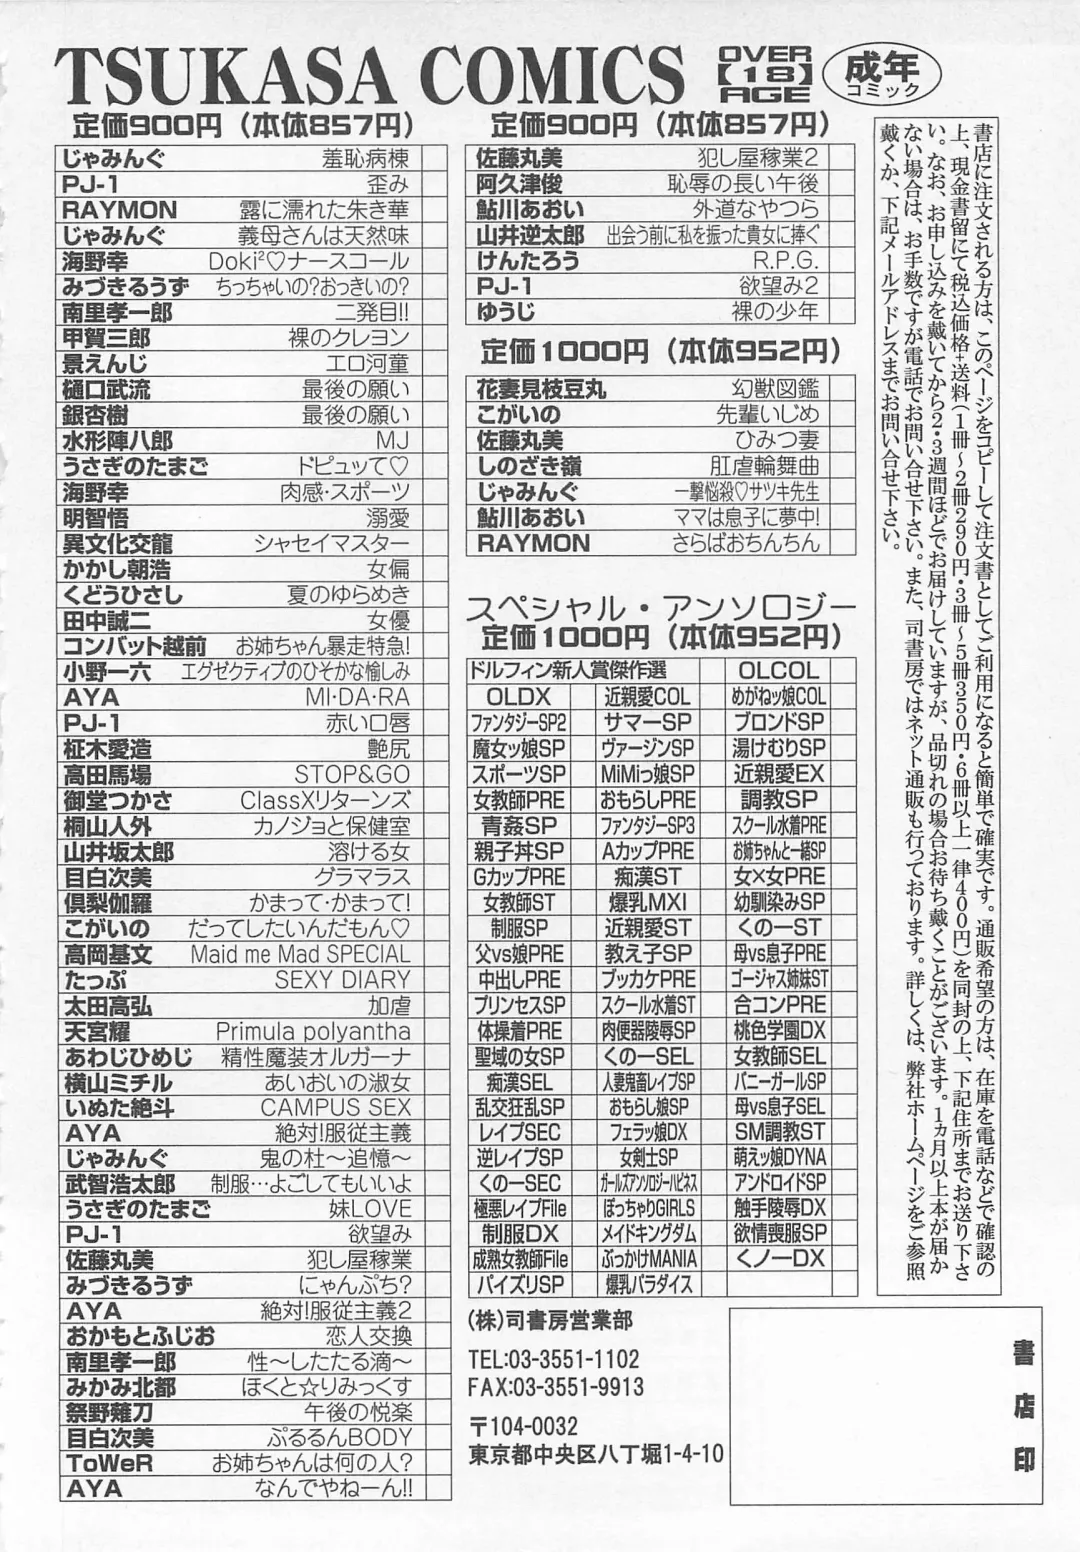 TSUKASA COMICS
OVER
【18】
AGE
成年
コミック
定価900円（本体857円）
じゃみんぐ 羞恥病棟
PJ-1 歪み
RAYMON 露に濡れた朱き華
じゃみんぐ 義母さんは天然味
海野幸 Doki²♡ナースコール
みづきるうず ちっちゃいの?おっきいの?
南里孝一郎 二発目!!
甲賀三郎 裸のクレヨン
景えんじ エロ河童
樋口武流 最後の願い
銀杏樹 最後の願い
水形陣八郎 MJ
うさぎのたまご ドピュッて♡
海野幸 肉感・スポーツ
明智悟 溺愛
異文化交龍 シャセイマスター
かかし朝浩 女偏
くどうひさし 夏のゆらめき
田中誠二 女優
コンバット越前 お姉ちゃん暴走特急!
小野一六 エグゼクティブのひそかな愉しみ
AYA MI・DA・RA
PJ-1 赤い口唇
柾木愛造 艶尻
高田馬場 STOP&GO
御堂つかさ ClassXリターンズ
桐山人外 カノジョと保健室
山井坂太郎 溶ける女
目白次美 グラマラス
倶梨伽羅 かまって・かまって!
こがいの だってしたいんだもん♡
高岡基文 Maid me Mad SPECIAL
たっぷ SEXY DIARY
太田高弘 加虐
天宮耀 Primula polyantha
あわじひめじ 精性魔装オルガーナ
横山ミチル あいおいの淑女
いぬた絶斗 CAMPUS SEX
AYA 絶対!服従主義
じゃみんぐ 鬼の杜～追憶～
武智浩太郎 制服…よごしてもいいよ
うさぎのたまご 妹LOVE
PJ-1 欲望み
佐藤丸美 犯し屋稼業
みづきるうず にゃんぷち?
AYA 絶対!服従主義2
おかもとふじお 恋人交換
南里孝一郎 性～したたる滴～
みかみ北都 ほくと☆りみっくす
祭野薙刀 午後の悦楽
目白次美 ぷるるんBODY
ToWeR お姉ちゃんは何の人?
AYA なんでやねーん!!
定価900円（本体857円）
佐藤丸美 犯し屋稼業2
阿久津俊 恥辱の長い午後
鮎川あおい 外道なやつら
山井逆太郎 出会う前に私を振った貴女に捧ぐ
けんたろう R.P.G.
PJ-1 欲望み2
ゆうじ 裸の少年
定価1000円（本体952円）
花妻見枝豆丸 幻獣図鑑
こがいの 先輩いじめ
佐藤丸美 ひみつ妻
しのざき嶺 肛虐輪舞曲
じゃみんぐ 一撃悩殺♡サツキ先生
鮎川あおい ママは息子に夢中!
RAYMON さらばおちんちん
スペシャル・アンソロジー
定価1000円（本体952円）
ドルフィン新人賞傑作選 OLCOL
OLDX 近親愛COL めがねッ娘COL
ファンタジーSP2 サマーSP ブロンドSP
魔女ッ娘SP ヴァージンSP 湯けむりSP
スポーツSP MiMiっ娘SP 近親愛EX
女教師PRE おもらしPRE 調教SP
青姦SP ファンタジーSP3 スクール水着PRE
親子丼SP AカップPRE お姉ちゃんと一緒SP
GカップPRE 痴漢ST 女×女PRE
女教師ST 爆乳MXI 幼馴染みSP
制服SP 近親愛ST くの一ST
父vs娘PRE 教え子SP 母vs息子PRE
中出しPRE ブッカケPRE ゴージャス姉妹ST
プリンセスSP スクール水着ST 合コンPRE
体操着PRE 肉便器陵辱SP 桃色学園DX
聖域の女SP くの一SEL 女教師SEL
痴漢SEL 人妻鬼畜レイプSP バニーガールSP
乱交狂乱SP おもらし娘SP 母vs息子SEL
レイプSEC フェラッ娘DX SM調教ST
逆レイプSP 女剣士SP 萌えッ娘DYNA
くの一SEC ガールズアンソロジーハピネス アンドロイドSP
極悪レイプFile ぽっちゃりGIRLS 触手陵辱DX
制服DX メイドキングダム 欲情喪服SP
成熟女教師File ぶっかけMANIA くノ一DX
パイズリSP 爆乳パラダイス
書店に注文される方は、このページをコピーして注文書としてご利用になると簡単で確実です。通販希望の方は、在庫を電話などで確認の
上、現金書留にて税込価格+送料（1冊～2冊290円・3冊～5冊350円・6冊以上一律400円）を同封の上、下記住所までお送り下さ
い。なお、お申し込みを戴いてから2・3週間ほどでお届けしていますが、品切れの場合お待ち戴くことがございます。1ヵ月以上本が届か
ない場合は、お手数ですが電話でお問い合せ下さい。また、司書房ではネット通販も行っております。詳しくは、弊社ホームページをご参照
戴くか、下記メールアドレスまでお問い合せ下さい。
(株)司書房営業部
TEL:03-3551-1102
FAX:03-3551-9913
〒104-0032
東京都中央区八丁堀1-4-10
書店印